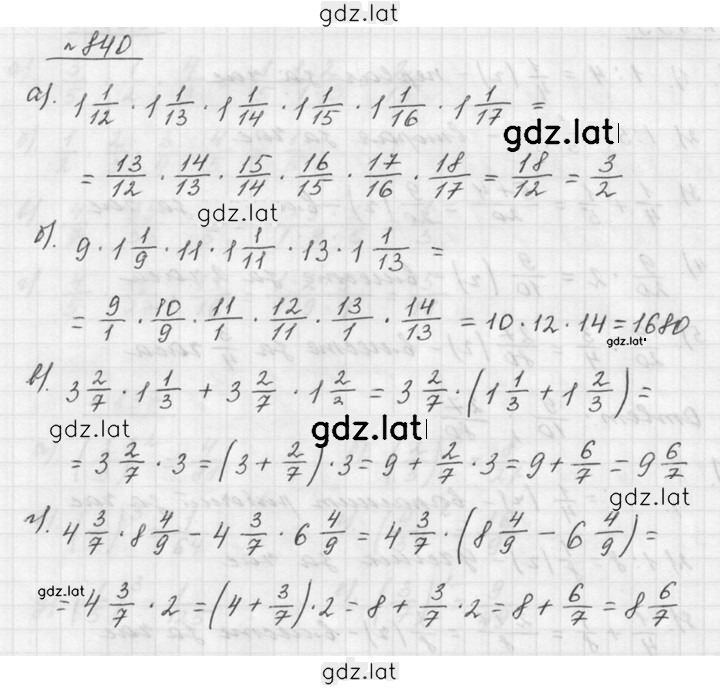 gdz.lat
№ 840
а). 1 1/12 · 1 1/13 · 1 1/14 · 1 1/15 · 1 1/16 · 1 1/17 =
gdz.lat
= 13/12 · 14/13 · 15/14 · 16/15 · 17/16 · 18/17 = 18/12 = 3/2
gdz.lat
б). 9 · 1 1/9 · 11 · 1 1/11 · 13 · 1 1/13 =
= 9/1 · 10/9 · 11/1 · 12/11 · 13/1 · 14/13 = 10 · 12 · 14 = 1680
gdz.lat
в). 3 2/7 · 1 1/3 + 3 2/7 · 1 2/3 = 3 2/7 · (1 1/3 + 1 2/3) =
gdz.lat gdz.lat
= 3 2/7 · 3 = (3 + 2/7) · 3 = 9 + 2/7 · 3 = 9 + 6/7 = 9 6/7
gdz.lat
г). 4 3/7 · 8 4/9 - 4 3/7 · 6 4/9 = 4 3/7 · (8 4/9 - 6 4/9) =
gdz.lat
= 4 3/7 · 2 = (4 + 3/7) · 2 = 8 + 3/7 · 2 = 8 + 6/7 = 8 6/7
gdz.lat